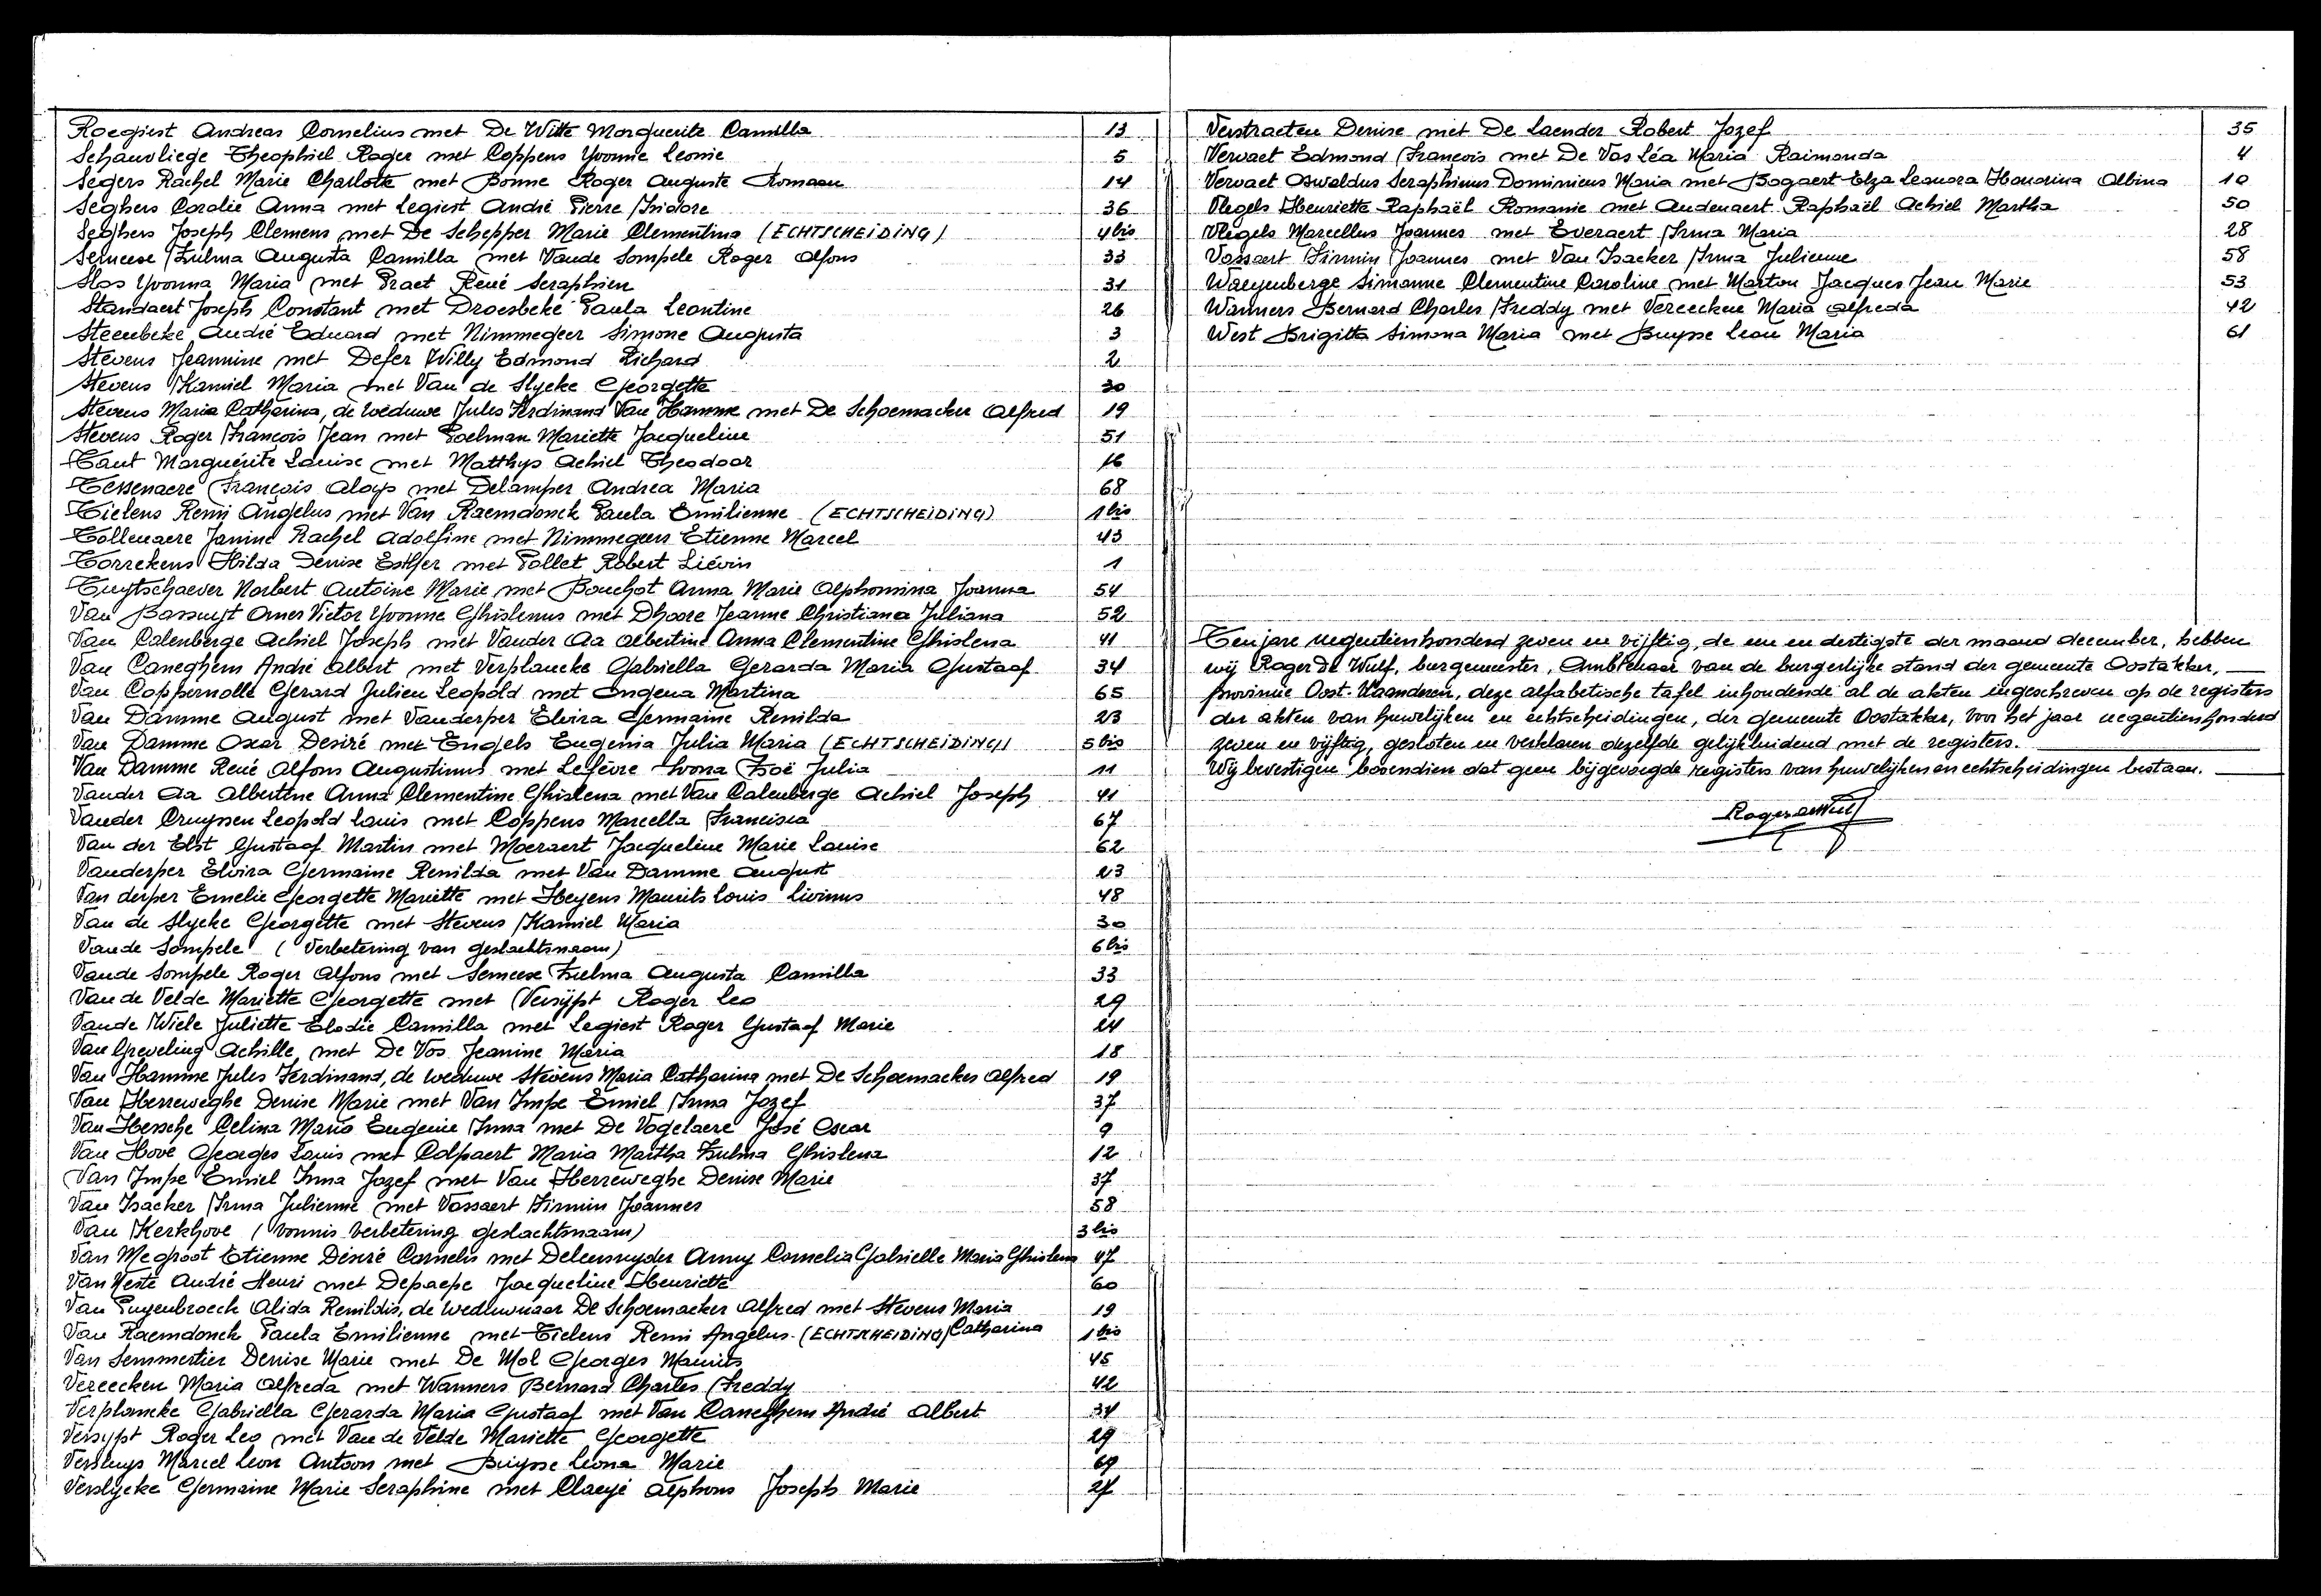 Roegiest Andreas Cornelius met De Witte Marguerite Camilla 13
Schauvliege Theophiel Roger met Coppens Yvonne Leonie 5
Segers Rachel Marie Charlotte met Bonne Roger Auguste Romaan 14
Seghers Coralie Anna met Legiest André Pierre Isidore 36
Seghers Joseph Clemens met De Schepper Marie Clementina (ECHTSCHEIDING) 4 bis
Semeese Zulma Augusta Camilla met Vande Sompele Roger Alfons 33
Slos Yvonna Maria met Praet René Seraphien 31
Standaert Joseph Constant met Droesbeke Paula Leontine 26
Steenbeke André Eduard met Nimmegeer Simone Augusta 3
Stevens Jeannine met Defer Willy Edmond Richard 2
Stevens Kamiel Maria met Van de Slycke Georgette 30
Stevens Maria Catharina, de weduwe Jules Ferdinand Van Hamme met De Schoemacker Alfred 19
Stevens Roger François Jean met Poelman Mariette Jacqueline 51
Tant Marguérite Louise met Matthys Achiel Theodoor 16
Tessenaere François Aloys met Delamper Andrea Maria 68
Tielens Remi Angelus met Van Raemdonck Paula Emilienne (ECHTSCHEIDING) 1 bis
Tollenaere Janine Rachel Adolfine met Nimmegeers Etienne Marcel 43
Torrekens Hilda Denise Esther met Pollet Robert Liévin 1
Tuytschaever Norbert Antoine Marie met Bouchot Anna Marie Alphonsina Joanna 54
Van Bassuyt Omer Victor Yvonne Ghislenus met Dhoore Jeanne Christiana Juliana 52
Van Calenberge Achiel Joseph met Vander Aa Albertine Anna Clementine Ghislena 41
Van Caneghem André Albert met Verplancke Gabriella Gerarda Maria Gustaaf 34
Van Coppernolle Gerard Julien Leopold met Ongena Martina 65
Van Damme August met Vanderper Elvira Germaine Renilda 23
Van Damme Oscar Desiré met Engels Eugenia Julia Maria (ECHTSCHEIDING) 5 bis
Van Damme René Alfons Augustinus met Lefèvre Ivona Zoë Julia 11
Vander Aa Albertine Anna Clementine Ghislena met Van Calenberge Achiel Joseph 41
Vander Cruyssen Leopold Louis met Coppens Marcella Francisca 67
Van der Elst Gustaaf Martin met Moeraert Jacqueline Marie Louise 62
Vanderper Elvira Germaine Renilda met Van Damme August 23
Van derper Emelie Georgette Mariette met Heyens Maurits Louis Livinus 48
Van de Slycke Georgette met Stevens Kamiel Maria 30
Vande Sompele (Verbetering van geslachtsnaam) 6 bis
Vande Sompele Roger Alfons met Semeese Zulma Augusta Camilla 33
Van de Velde Mariette Georgette met Versijpt Roger Leo 29
Vande Wiele Juliette Elodie Camilla met Legiest Roger Gustaaf Marie 24
Van Greveling Achille met De Vos Jeanine Maria 18
Van Hamme Jules Ferdinand, de weduwe Stevens Maria Catharina met De Schoemacker Alfred 19
Van Herreweghe Denise Marie met Van Impe Emiel Irma Jozef 37
Van Hessche Celina Maria Eugenie Irma met De Vogelaere José Oscar 9
Van Hove Georges Louis met Colpaert Maria Martha Zulma Ghislena 12
Van Impe Emiel Irma Jozef met Van Herreweghe Denise Marie 37
Van Isacker Irma Julienne met Vossaert Firmin Joannes 58
Van Kerkhove (Vonnis verbetering geslachtsnaam) 3 bis
Van Megroot Etienne Désiré Cornelis met Deleersnyder Anny Cornelia Gabrielle Maria Ghislena 47
Van Neste André Henri met Depaepe Jacqueline Henriette 60
Van Puyenbroeck Alida Renildis, de weduwnaar De Schoemacker Alfred met Stevens Maria 19
Van Raemdonck Paula Emilienne met Tielens Remi Angelus (ECHTSCHEIDING) Catharina 1 bis
Van Semmertier Denise Marie met De Mol Georges Maurits 45
Vereecken Maria Alfreda met Wanners Bernard Charles Freddy 42
Verplancke Gabriella Gerarda Maria Gustaaf met Van Caneghem André Albert 34
Versypt Roger Leo met Van de Velde Mariette Georgette 29
Versluys Marcel Leon Antoon met Buysse Leona Marie 69
Verslycke Germaine Marie Seraphine met Claeyé Alphons Joseph Marie 27
Verstraeten Denise met De Laender Robert Jozef 35
Vervaet Edmond François met De Vos Léa Maria Raimonda 4
Vervaet Oswaldus Seraphinus Dominicus Maria met Bogaert Elza Leonora Honorina Albina 10
Vlegels Henriette Raphaël Romanie met Audenaert Raphaël Achiel Martha 50
Vlegels Marcellus Joannes met Everaert Irma Maria 28
Vossaert Firmin Joannes met Van Isacker Irma Julienne 58
Waeyenberge Simonne Clementine Caroline met Marton Jacques Jean Marie 53
Wanners Bernard Charles Freddy met Vereecken Maria Alfreda 42
West Brigitta Simona Maria met Buysse Leon Maria 61
Ten jare negentienhonderd zeven en vijftig, de een en dertigste der maand december, hebben
wij Roger De Wulf, burgemeester, Ambtenaar van de burgerlijke stand der gemeente Oostakker,
provincie Oost-Vlaanderen, deze alfabetische tafel inhoudende al de akten ingeschreven op de registers
der akten van huwelijken en echtscheidingen, der gemeente Oostakker, voor het jaar negentienhonderd
zeven en vijftig, gesloten en verklaren dezelfde gelijkluidend met de registers.
Wij bevestigen bovendien dat geen bijgevoegde registers van huwelijken en echtscheidingen bestaan.
Roger de Wulf